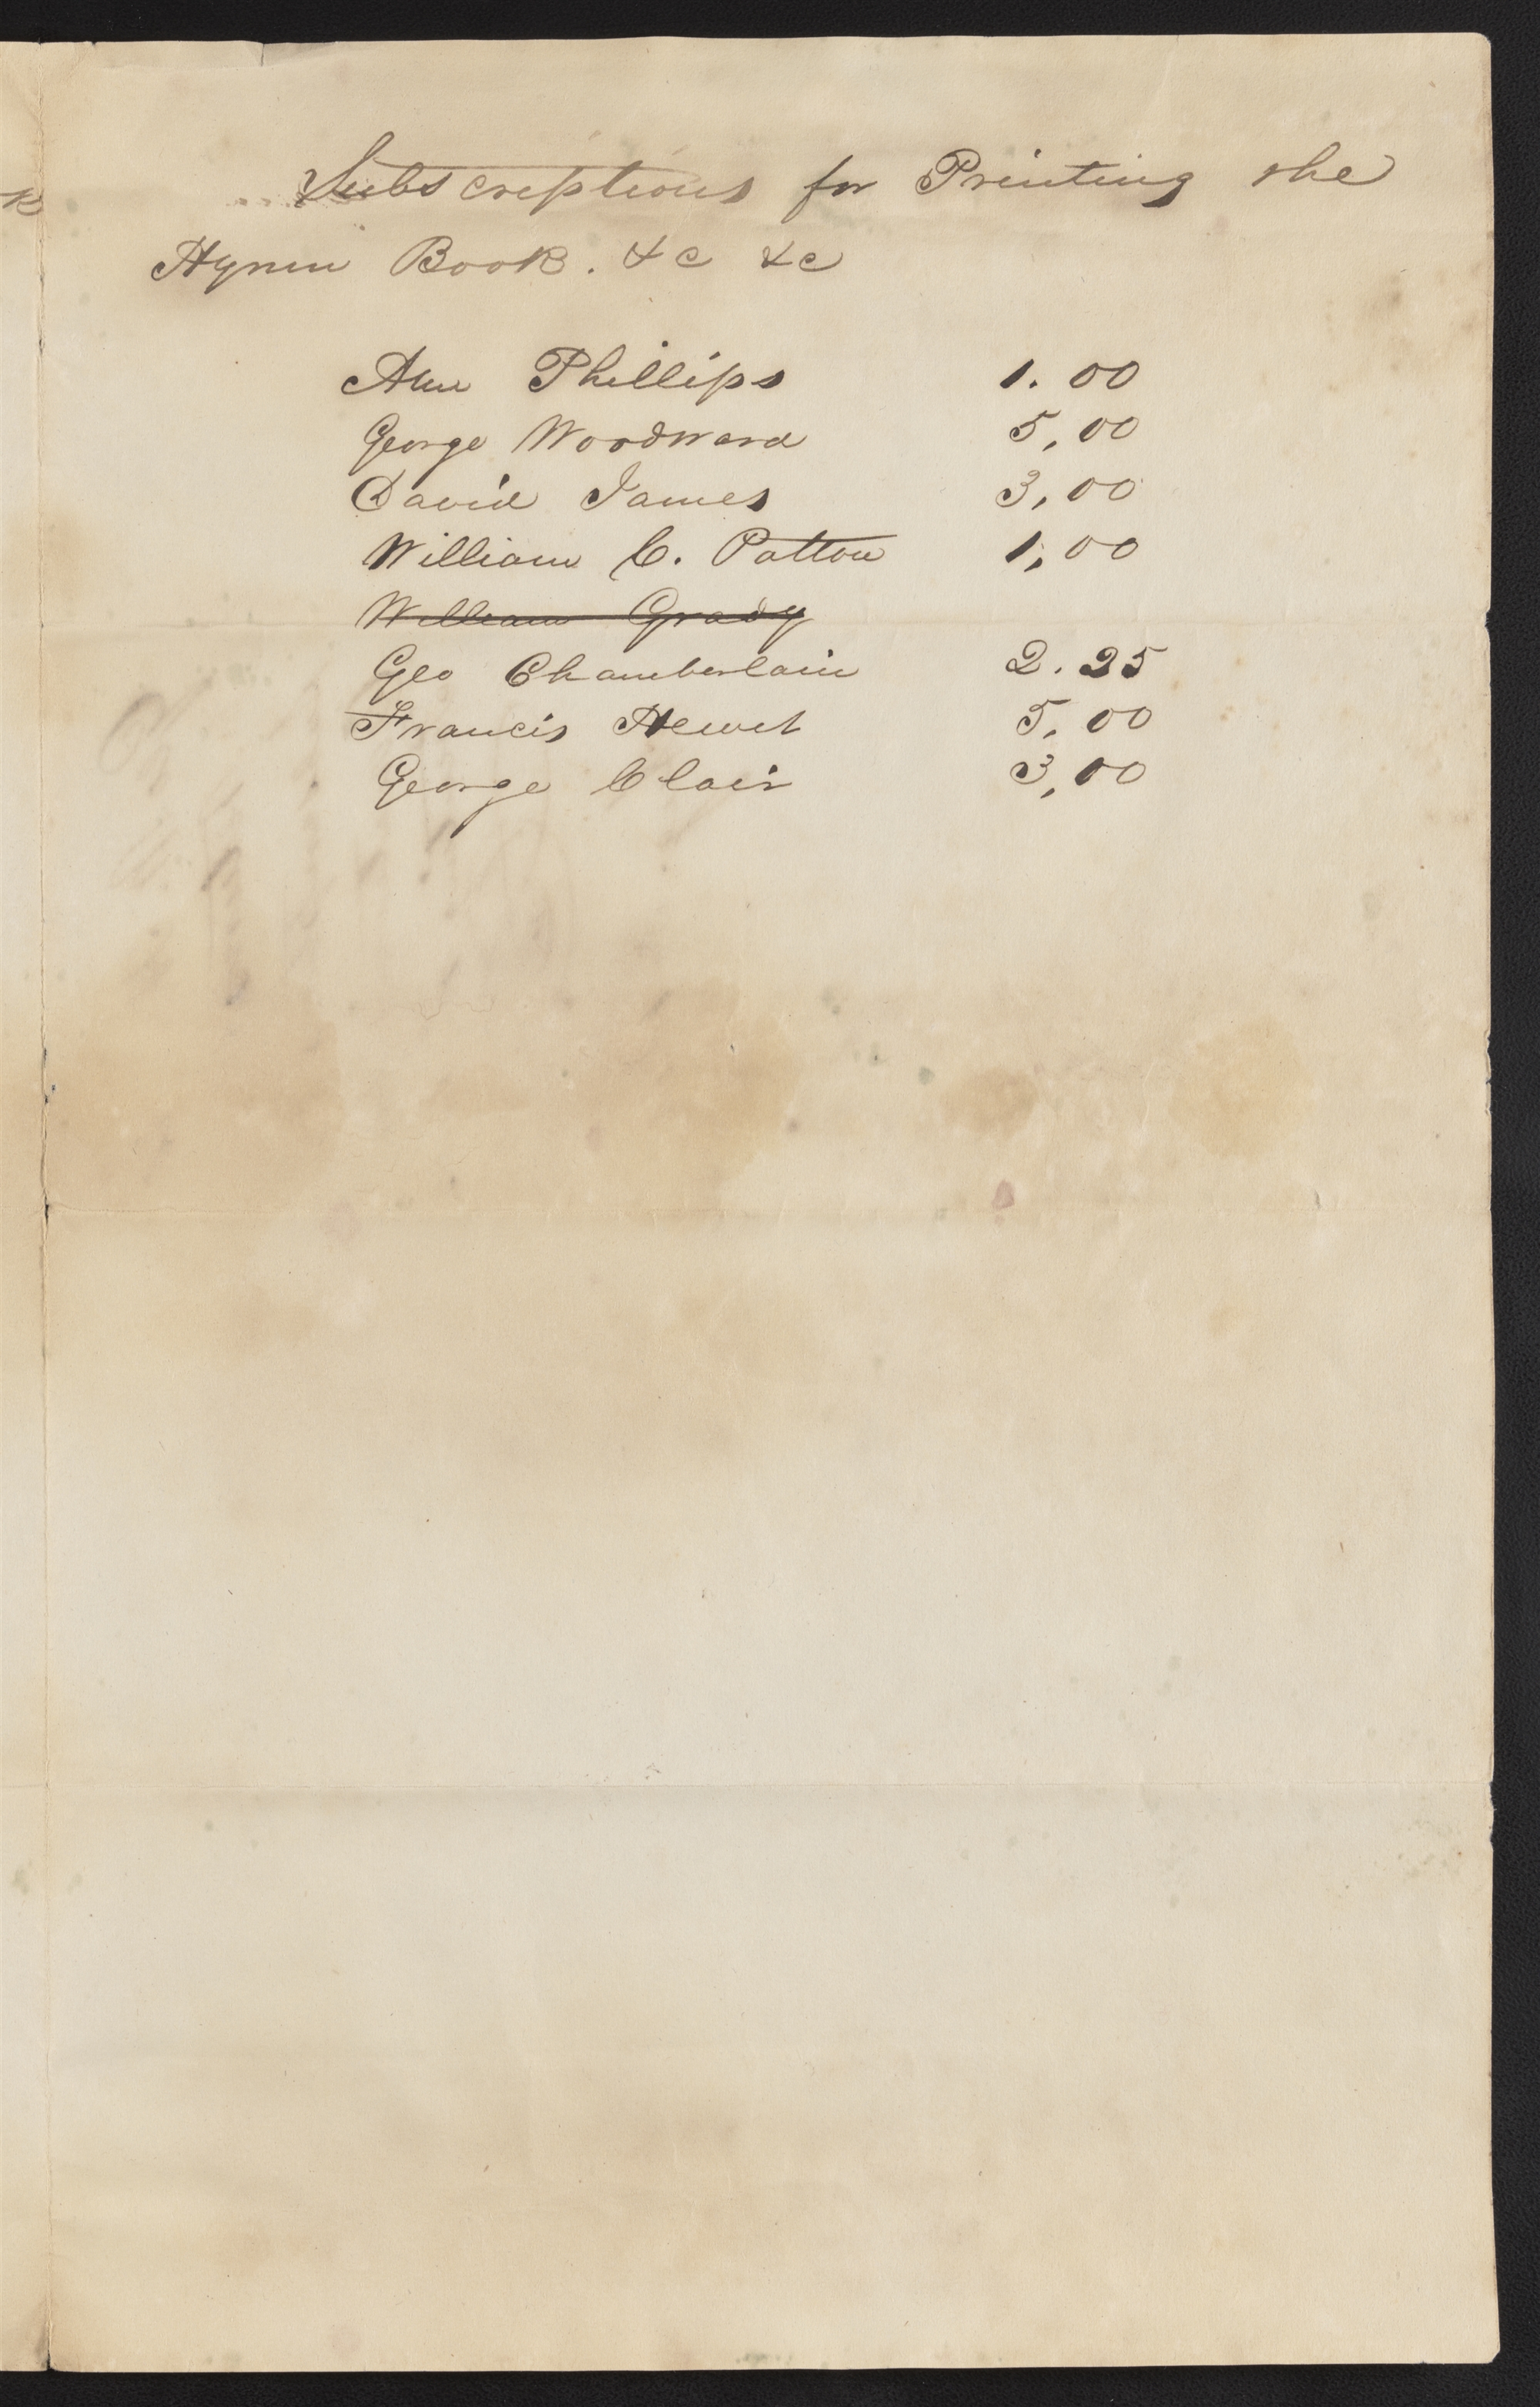 Subscriptions for Printing the
Hymn Book. &c &c
Ann Phillips 1.00
George Woodward 5,00
David James 3,00
William C. Patton 1,00
William Grady
Geo Chamberlain 2.25
Francis Hewet 5,00
George Clair 3,00